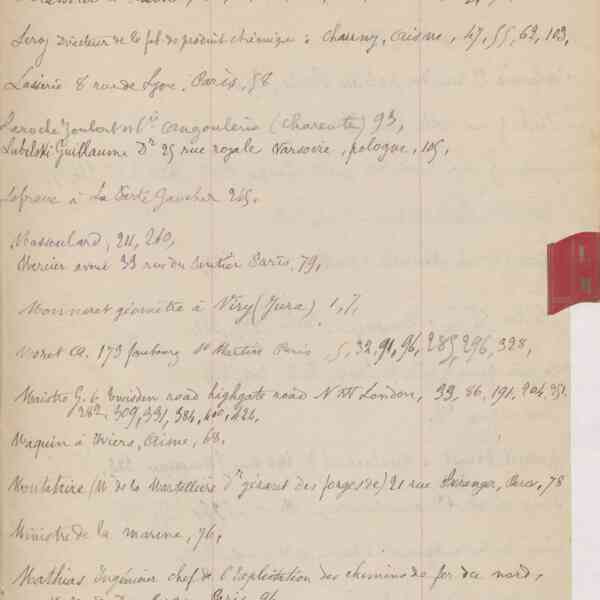 Leroy Directeur de la fab. de produit chimique à Chauny, Aisne, 47, 55, 63, 103,
Lasserie 8 rue de Lyon, Paris, 58
Laroche Joubert et Cie Angoulême (Charente) 93,
Lubelski Guillaume Dr 25 rue royale Varsovie, pologne, 105,
à La Ferté Gaucher 265.
Massoulard, 211, 260,
Mercier avoué 33 rue du Sentier Paris, 79,
Monneret géomètre à Viry (Jura), 1, 7,
Moret CA. 173 faubourg St Martin Paris, 5, 32, 91, 96, 285, 296, 328,
Maistre G. 6 Twisden road highgate road N W London, 33, 86, 191, 204, 251.
282, 309, 331, 384, 400, 426.
Maquin à Aisne, 68.
Montataire (M de la Martellière Dr gérant des forges de) 21 rue Béranger, Paris, 78
Ministre de la marine, 76,
Mathias Ingénieur chef de l'Exploitation des chemins de fer du nord,
Paris 96